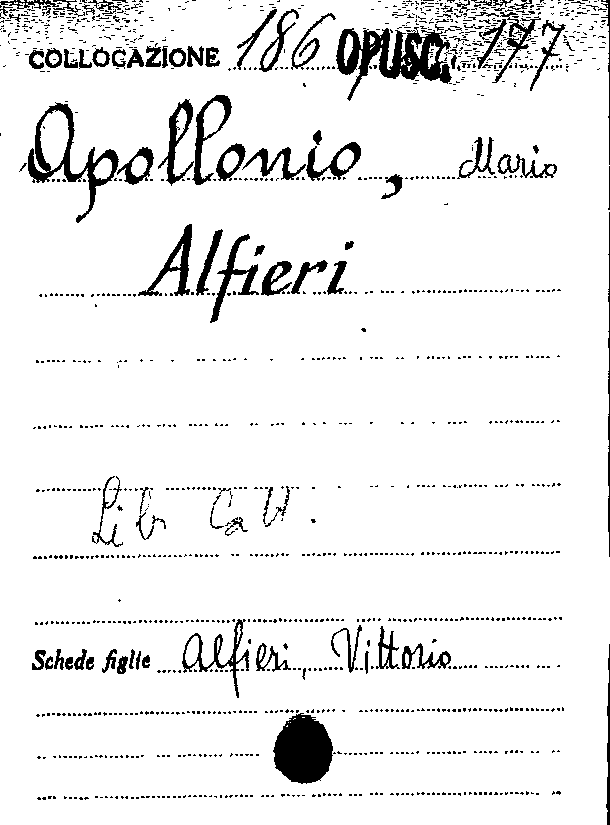 COLLOCAZIONE 186 OPUSC. 177
Apollonio, Mario
Alfieri
Lib Catt.
Schede figlie Alfieri, Vittorio